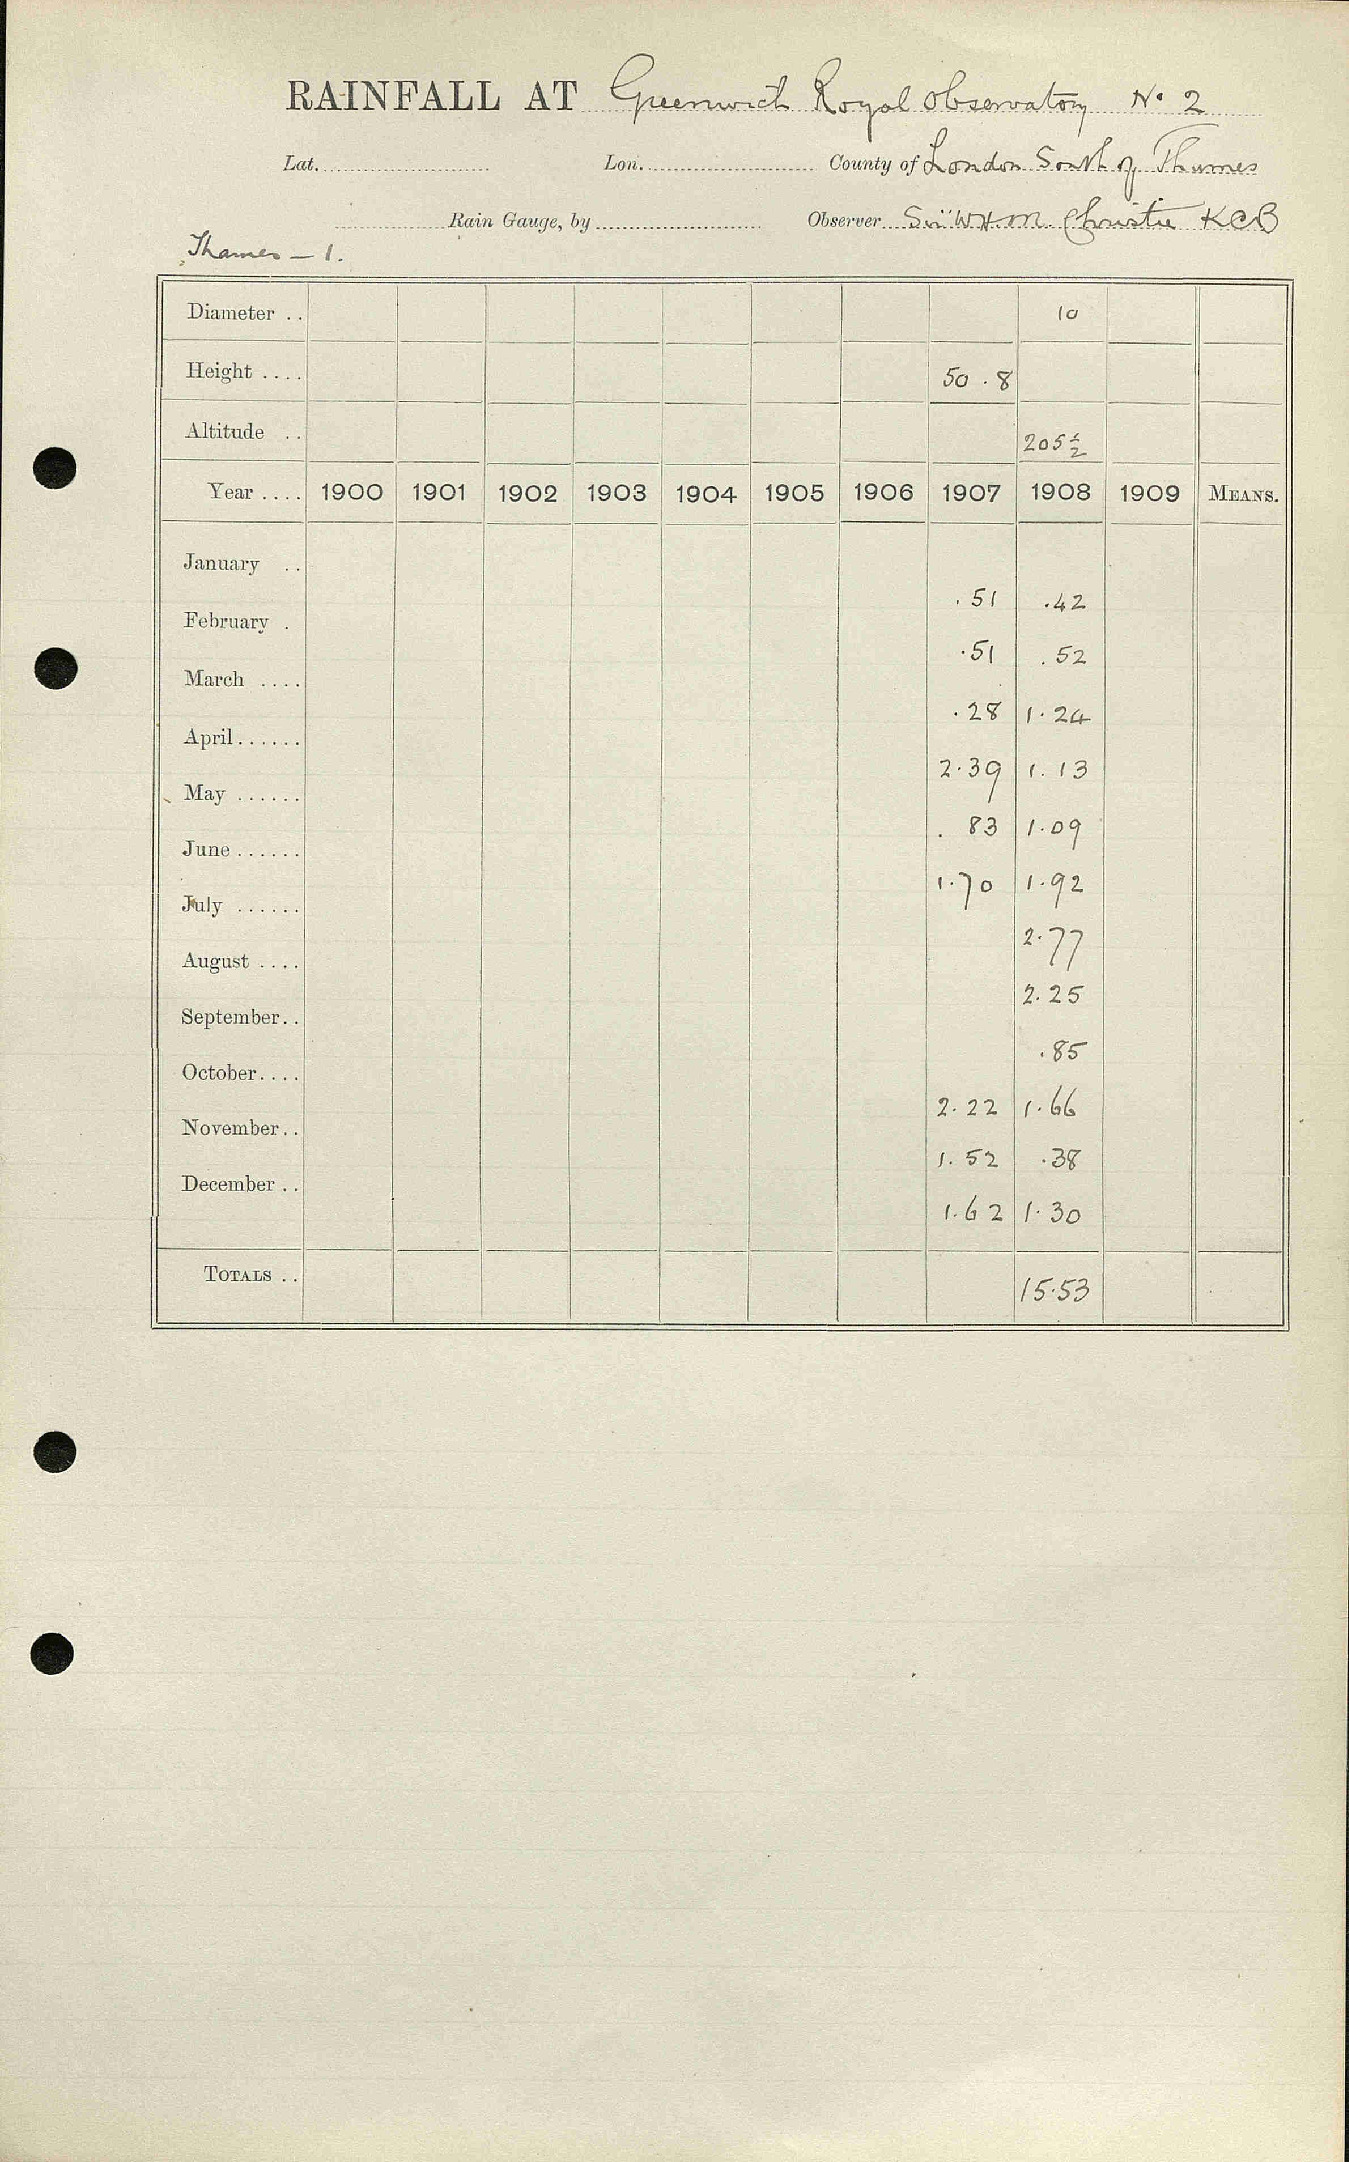 RAINFALL AT Greenwich Royal Observatory No 2
Lat. Lon. County of London South of Thames
Rain Gauge, by Observer Sir W.H.M. Christie KCB
Thames - 1.
Diameter .. 10
Height .... 50 . 8
Altitude .. 205½
Year .... 1900 1901 1902 1903 1904 1905 1906 1907 1908 1909 MEANS.
January .. .51 .42
February . .51 .52
March .... .28 1.24
April...... 2.39 1.13
May ...... .83 1.09
June ...... 1.70 1.92
July ...... 2.77
August .... 2.25
September.. .85
October.... 2.22 1.66
November.. 1.52 .38
December .. 1.62 1.30
TOTALS .. 15.53